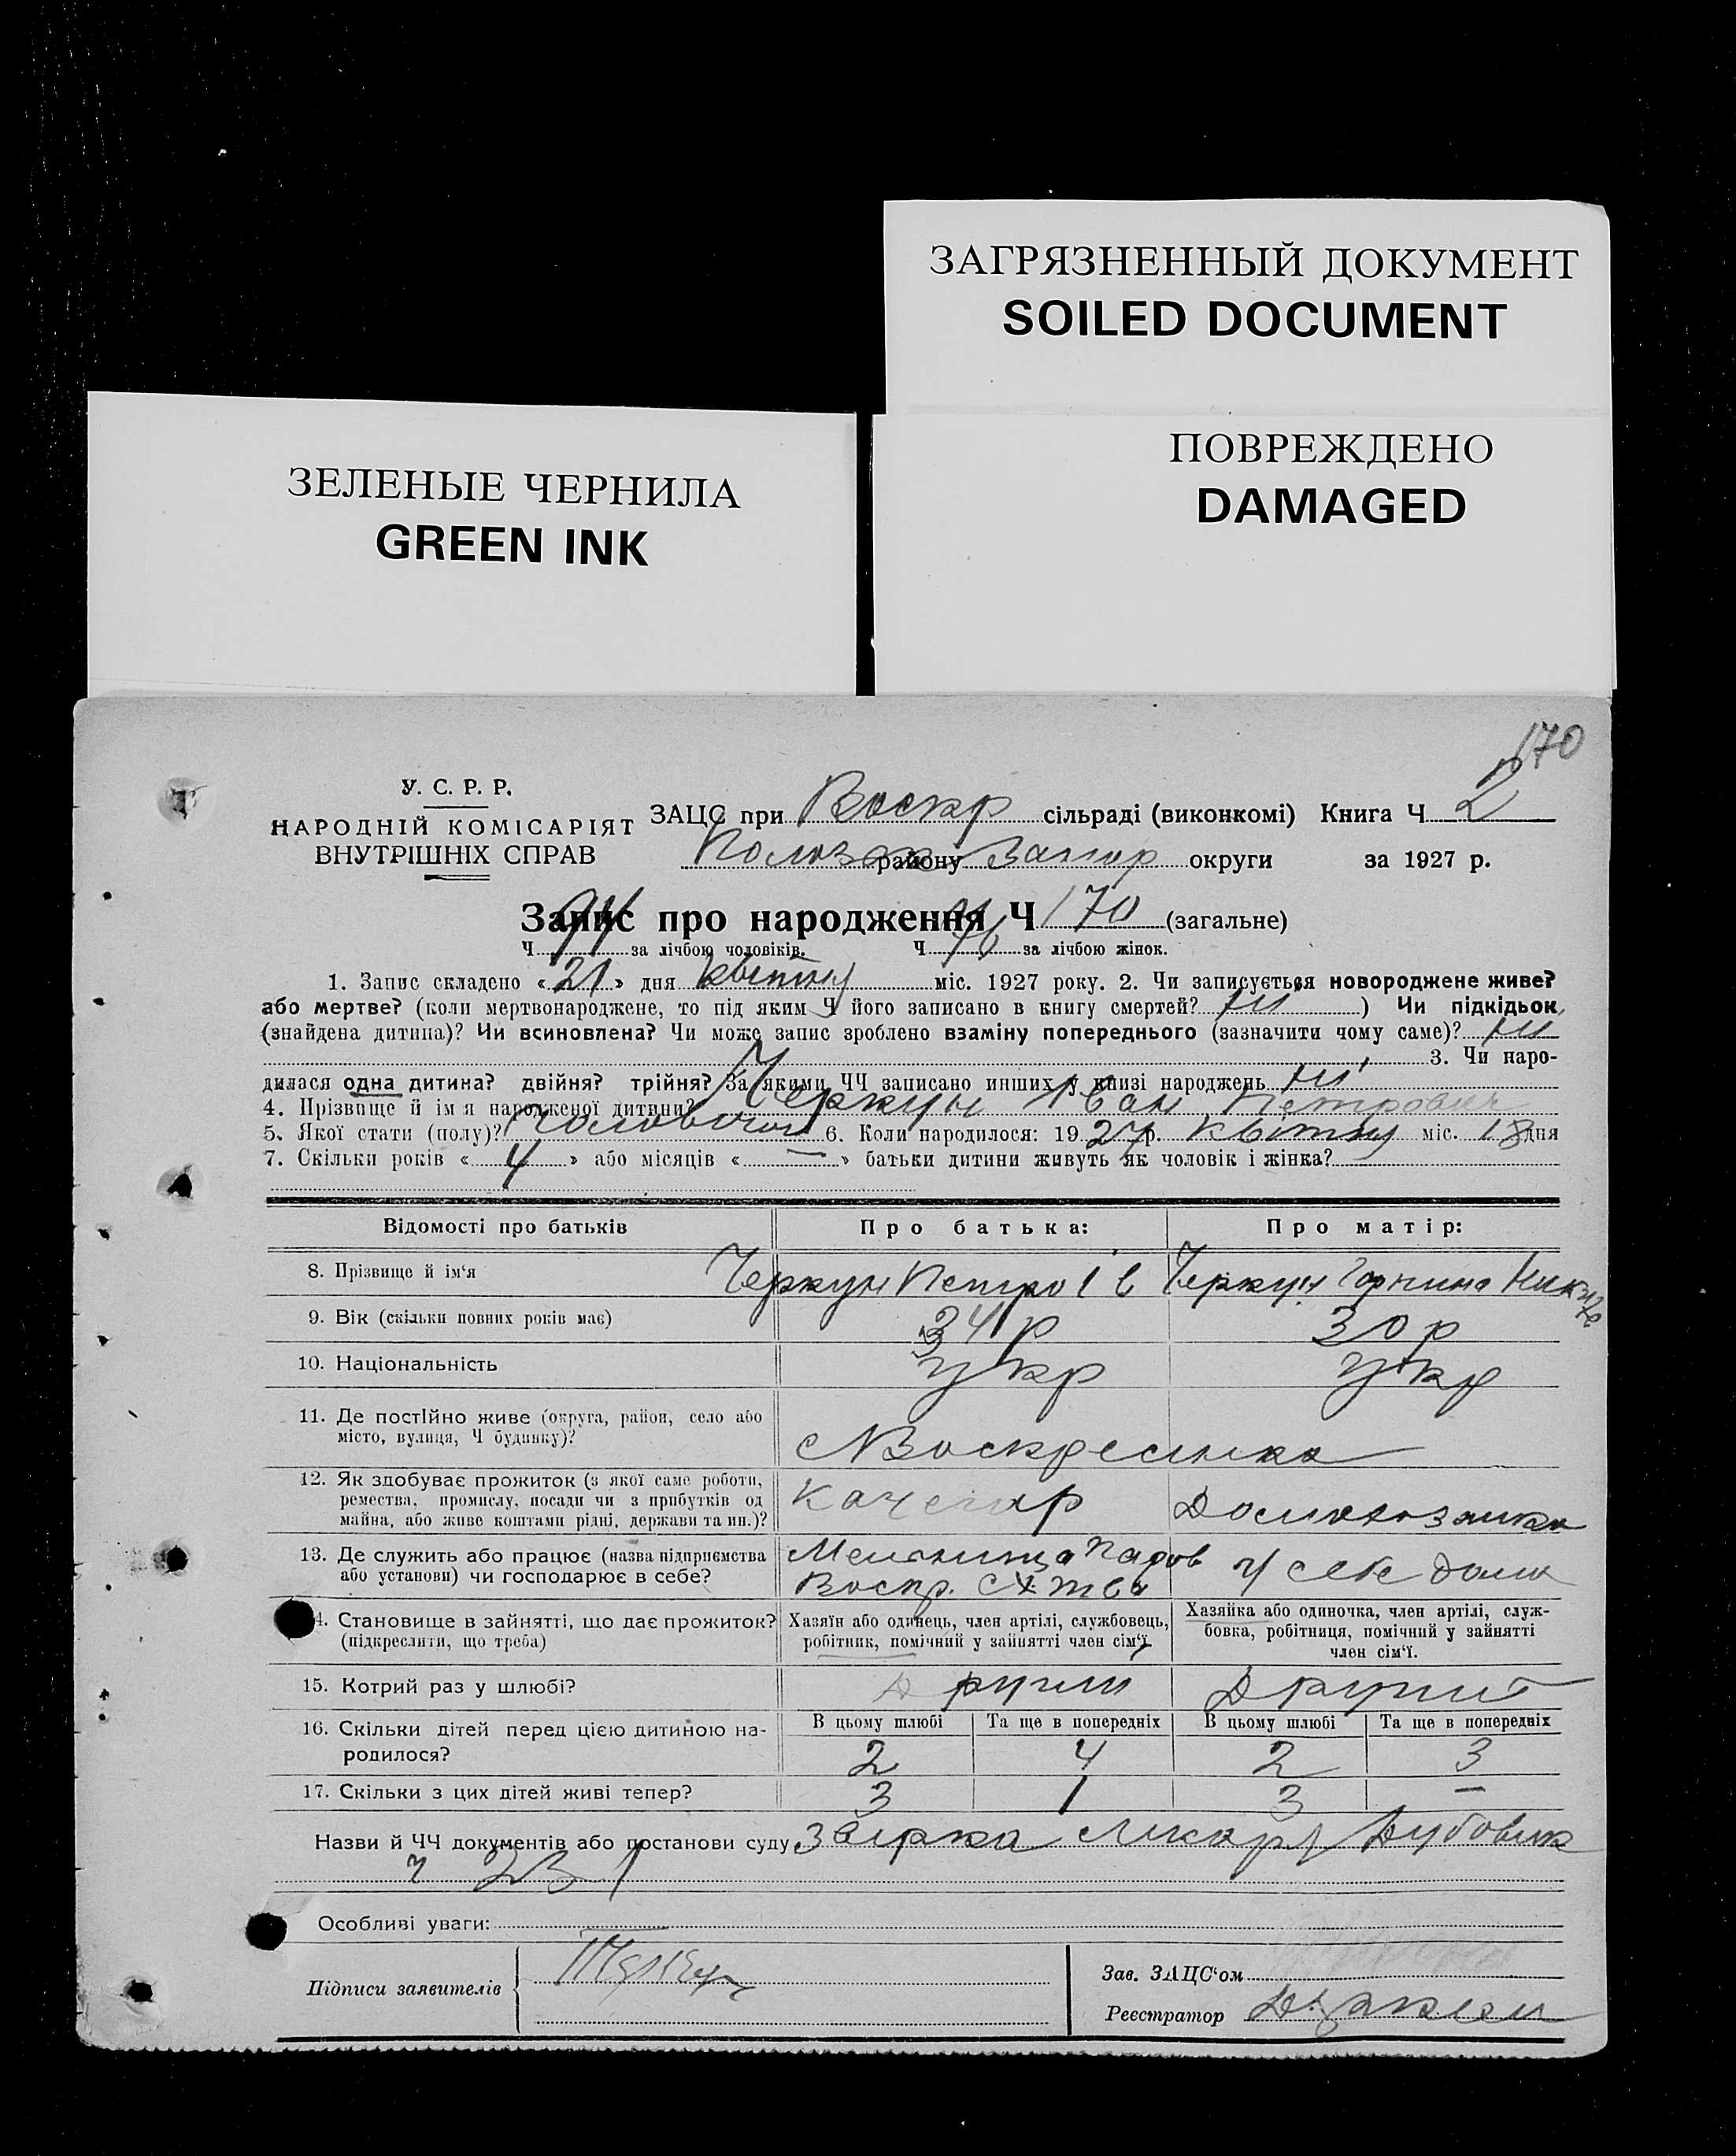 ЗАГРЯЗНЕННЫЙ ДОКУМЕНТ
SOILED DOCUMENT
ПОВРЕЖДЕНО
DAMAGED
ЗЕЛЕНЫЕ ЧЕРНИЛА
GREEN INK
170
У. С. Р. Р.
НАРОДНІЙ КОМІСАРІЯТ
ВНУТРІШНІХ СПРАВ
ЗАЦС при Воскр сільраді (виконкомі) Книга Ч 2
району Запор округи за 1927 р.
Запис про народження Ч 170 (загальне)
Ч 94 за лічбою чоловіків. Ч 76 за лічбою жінок.
1. Запис складено «21» дня квітня міс. 1927 року. 2. Чи записується новороджене живе?
або мертве? (коли мертвонароджене, то під яким Ч його записано в книгу смертей? ні ) Чи підкідьок
(знайдена дитина)? Чи всиновлена? Чи може запис зроблено взаміну попереднього (зазначити чому саме)? ні
3. Чи наро-
дилася одна дитина? двійня? трійня? За якими ЧЧ записано инших у книзі народжень ні
4. Прізвище й ім'я народженої дитини? Черкун Іван Петрович
5. Якої стати (полу)? 6. Коли народилося: 1927 р. квітня міс. 18 дня
7. Скільки років «4» або місяців «—» батьки дитини живуть як чоловік і жінка?
Відомості про батьків Про батька: Про матір:
8. Прізвище й ім'я Черкун Петро І в Черкун Горпина
9. Вік (скільки повних років має) 34 р 30 р
10. Національність укр укр
11. Де постійно живе (округа, район, село або
місто, вулиця, Ч будинку)? с Воскресенка
12. Як здобуває прожиток (з якої саме роботи,
ремества, промислу, посади чи з прибутків од
майна, або живе коштами рідні, держави та ин.)? Кочегар
13. Де служить або працює (назва підприємства
або установи) чи господарює в себе? Паров Воскр. у себе дома
14. Становище в зайнятті, що дає прожиток?
(підкреслити, що треба)
Хазяїн або одинець, член артілі, службовець,
робітник, помічний у зайнятті член сім'ї.
Хазяйка або одиночка, член артілі, служ-
бовка, робітниця, помічний у зайнятті
член сім'ї.
15. Котрий раз у шлюбі? Другий
16. Скільки дітей перед цією дитиною на-
родилося?
В цьому шлюбі Та ще в попередніх В цьому шлюбі Та ще в попередніх
2 4 2 3
17. Скільки з цих дітей живі тепер? 3 1 3 —
Назви й ЧЧ документів або постанови суду
Особливі уваги:
Підписи заявителів
Зав. ЗАЦС'ом
Реєстратор